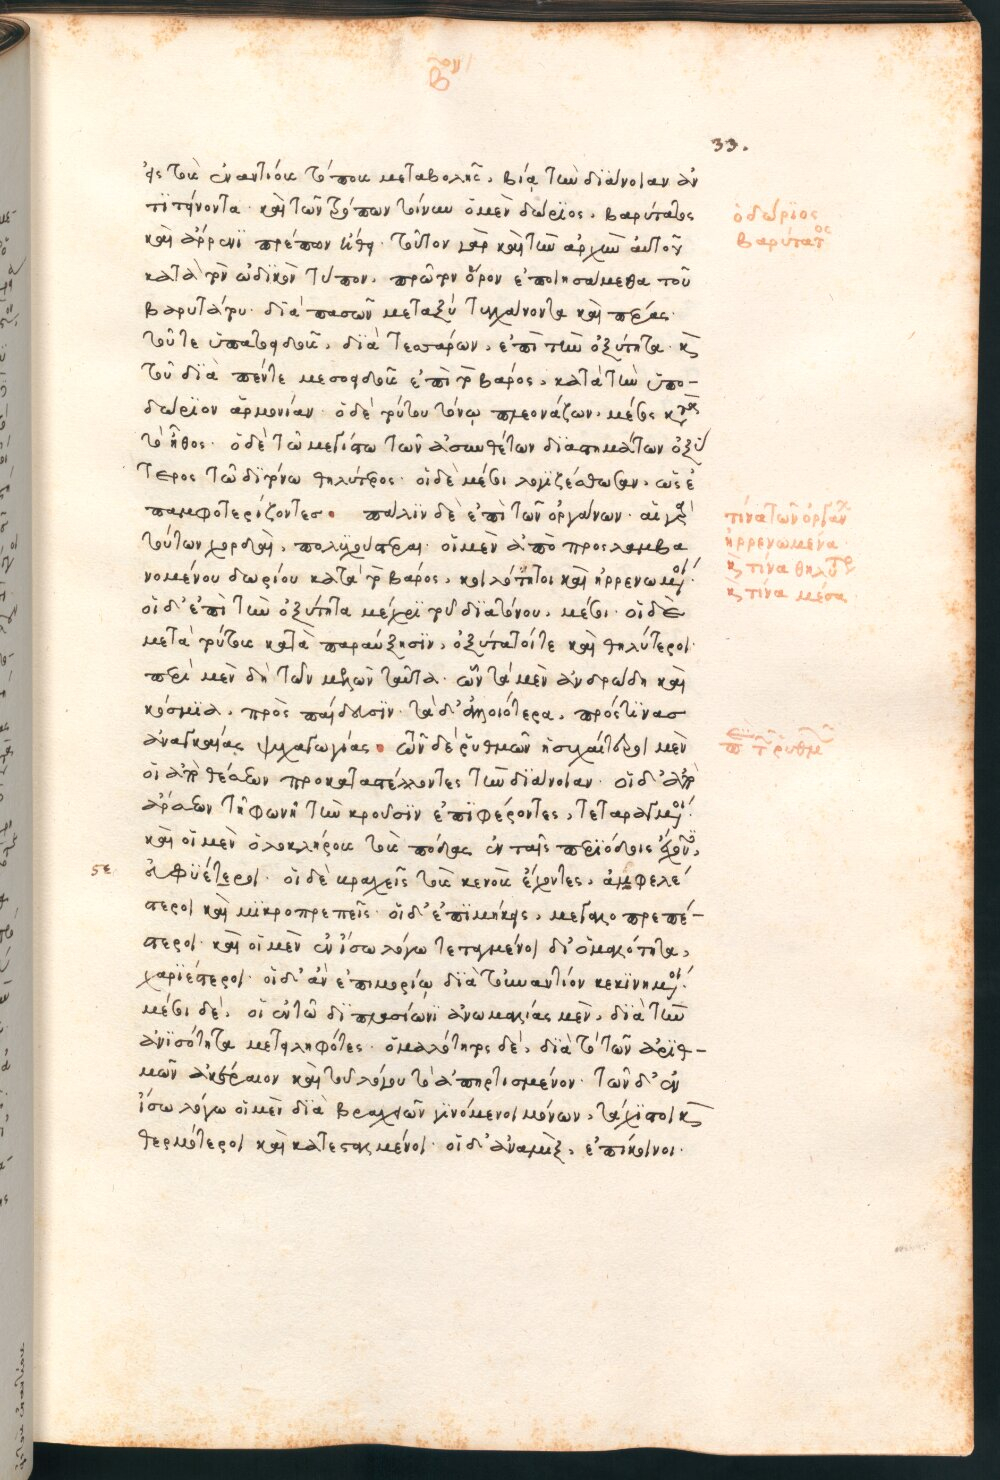 βον
33.
τε τοῖς ἐναντίοις τόποις μεταβολῆς, βίᾳ τὴν διάνοιαν ἀν
τιτείνοντα· καὶ τῶν τρόπων τοίνυν ὁ μὲν δώριος, βαρύτατος
καὶ ἄρρενι πρέπων ἤθει· τοῦτον γὰρ καὶ τὴν ἀρχὴν αὐτοῦ
κατὰ τὸν ᾠδικὸν τύπον, πρῶτον ὅρον ἐποιησάμεθα τοῦ
βαρυτάτου· διὰ πασῶν μεταξὺ τυγχάνοντα καὶ πέρας
τοῦ τε ὑπατοειδοῦς, διὰ τεσσάρων, ἐπὶ τὴν ὀξύτητα· κ
τοῦ διὰ πέντε μεσοειδοῦς ἐπὶ τὸ βάρος, κατὰ τὴν ὑπο-
δώριον ἁρμονίαν· ὁ δὲ τούτου τόνῳ πλεονάζων, μέσος κατὰ
τὸ ἦθος· ὁ δὲ τῷ μεγίστῳ τῶν ἀσυνθέτων διαστημάτων ὀξύ
τερος τῷ διτόνῳ θηλύτερος· οἱ δὲ μέσοι λογιζέσθωσαν, ὡς ἐ
παμφοτερίζοντες· πάλιν δὲ ἐπὶ τῶν ὀργάνων· αἱ γὰρ
τούτων χορδαὶ,
νομένου δωρίου κατὰ τὸ βάρος, καὶ ἠρρενωμένοι
οἱ δ' ἐπὶ τὴν ὀξύτητα μέχρι τοῦ διατόνου, μέσοι· οἱ δὲ
μετὰ τούτους κατὰ παραύξησιν, ὀξύτατοί τε καὶ θηλύτεροι·
περὶ μὲν δὴ τῶν μελῶν ταῦτα· ὧν τὰ μὲν ἀνδρώδη καὶ
κόσμια, πρὸς παίδευσιν· τὰ δ' ἀλλοιότερα, πρός τινας
ἀναγκαίας ψυχαγωγίας· τῶν δὲ ῥυθμῶν ἡσυχαίτεροι μὲν
οἱ ἀπὸ θέσεων προκαταστέλλοντες τὴν διάνοιαν· οἱ δ' ἀπὸ
ἄρσεων τῇ φωνῇ τὴν κροῦσιν ἐπιφέροντες, τεταραγμένοι·
καὶ οἱ μὲν ὁλοκλήρους τοὺς πόδας ἐν ταῖς περιόδοις ἔχοντες,
εὐφυέστεροι· οἱ δὲ βραχεῖς τοὺς κενοὺς ἔχοντες, ἀφελέ
στεροι καὶ μικροπρεπεῖς· οἱ δ' ἐπιμήκεις, μεγαλοπρεπέ-
στεροι· καὶ οἱ μὲν ἐν ἴσῳ λόγῳ τεταγμένοι δι' ὁμαλότητα,
χαριέστεροι· οἱ δ' ἐν ἐπιμορίῳ διὰ τοὐναντίον κεκινημένοι·
μέσοι δέ, οἱ ἐν τῷ διπλασίονι ἀνωμαλίας μὲν, διὰ τὴν
ἀνισότητα μετειληφότες· ὁμαλότητος δέ, διὰ τὸ τῶν ἀριθ-
μῶν ἀκέραιον καὶ τοῦ λόγου τὸ ἀπηρτισμένον· τῶν δ' ἐν
ἴσῳ λόγῳ οἱ μὲν διὰ βραχειῶν γινόμενοι μόνων, τάχιστοι κ
θερμότεροι καὶ κατεσταλμένοι· οἱ δ' ἀναμὶξ, ἐπίκοινοι·
ὁ δώριος
βαρύτατος
τίνα τῶν ὀργάνων
ἠρρενωμένα
κ τίνα θηλύτερα
κ τίνα μέσα